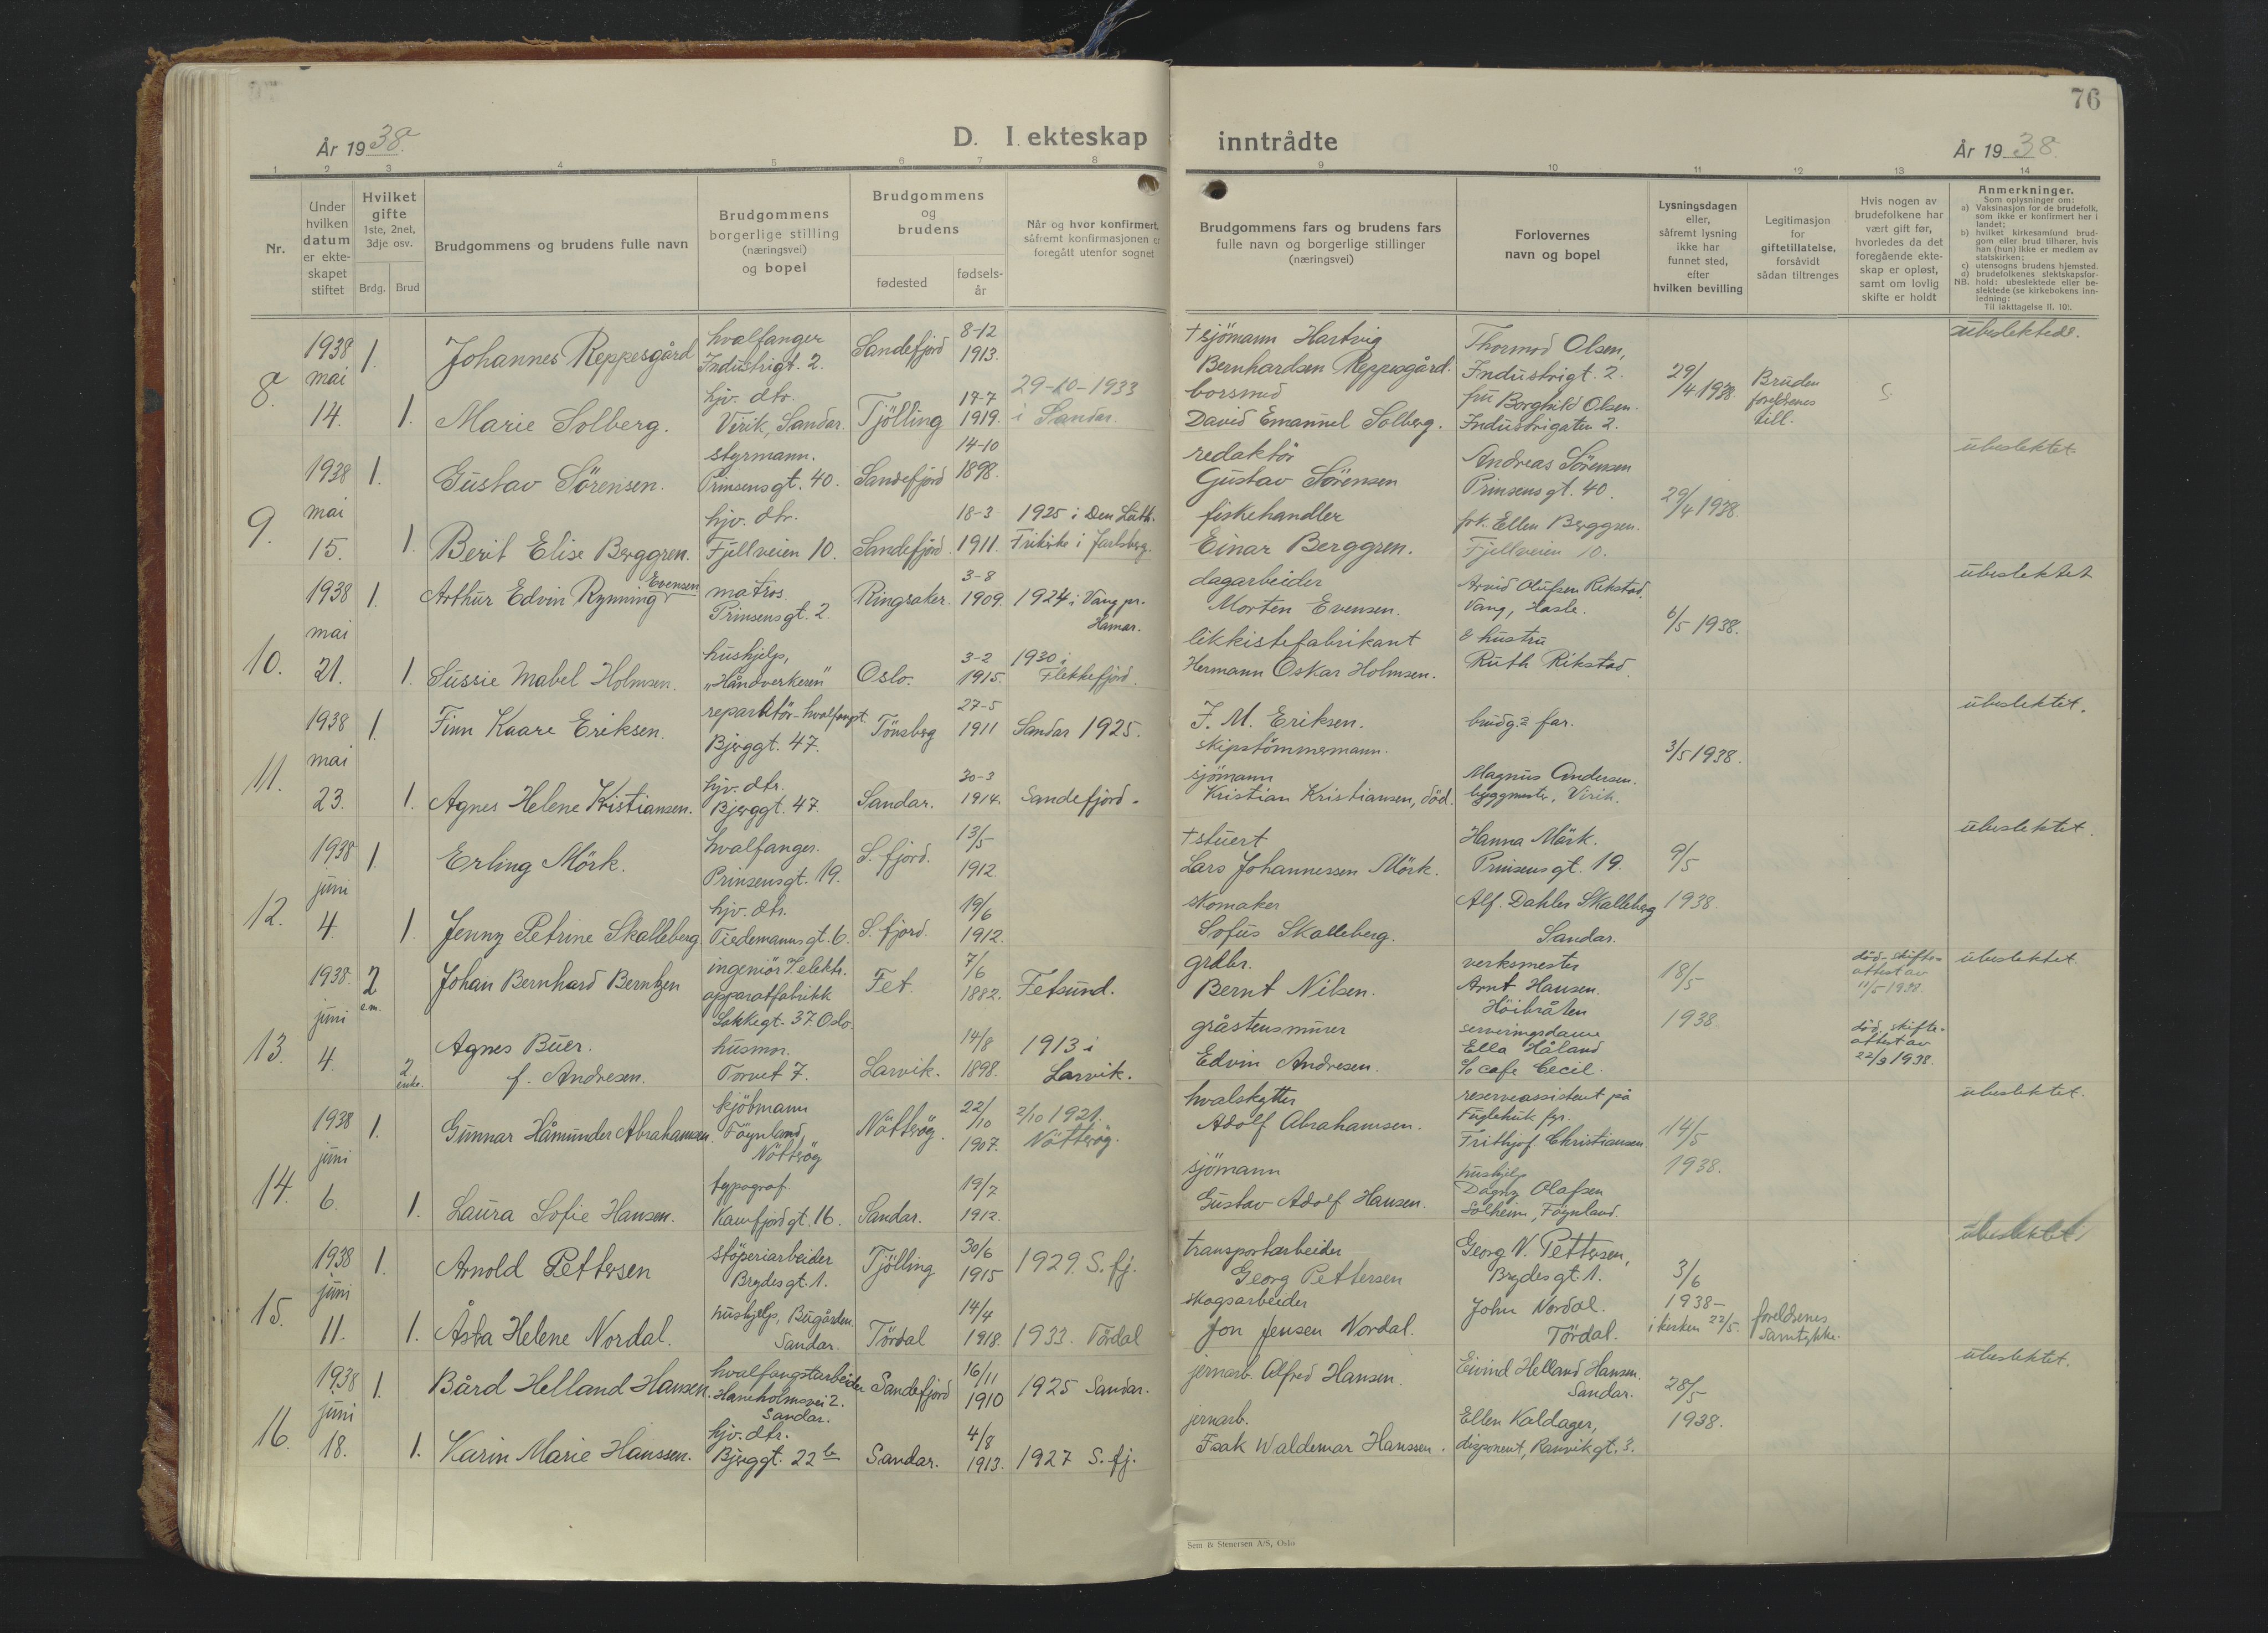 76
År 19 38.
D. I ekteskap inntrådte
År 19 38.
1 2 3 4 5 6 7 8 9 10 11 12 13 14
Nr.
Under hvilken datum er ekte-skapet stiftet
Hvilket gifte
1ste, 2net, 3dje osv.
Brdg. Brud
Brudgommens og brudens fulle navn
Brudgommens borgerlige stilling (næringsvei) og bopel
Brudgommens og brudens
fødested
fødsels-år
Når og hvor konfirmert, såfremt konfirmasjonen er foregått utenfor sognet
Brudgommens fars og brudens fars fulle navn og borgerlige stillinger (næringsvei)
Forlovernes navn og bopel
Lysningsdagen eller, såfremt lysning ikke har funnet sted, efter hvilken bevilling
Legitimasjon for giftetillatelse, forsåvidt sådan tiltrenges
Hvis nogen av brudefolkene har vært gift før, hvorledes da det foregående ekte-skap er opløst, samt om lovlig skifte er holdt
Anmerkninger.
Som oplysninger om:
a) Vaksinasjon for de brudefolk, som ikke er konfirmert her i landet;
b) hvilket kirkesamfund brud-gom eller brud tilhører, hvis han (hun) ikke er medlem av statskirken;
c) utensogns brudens hjemsted.
d) brudefolkenes slektskapsfor-hold: ubeslektede eller be-slektede (se kirkebokens inn-ledning:
NB. Til iakttagelse II. 10).
8. 1938 mai 14.
1. Johannes Reppesgård
hvalfanger
Industrigt. 2.
Sandefjord
8-12
1913.
† sjömann Hartvig
Bernhardsen Reppesgård.
Thormod Olsen,
Industrigt. 2.
29/4 1938.
Bruden foreldrenes till.
ubeslektede.
1. Marie Solberg.
hjv. dtr.
Virik, Sandar.
Tjölling
17-7
1919.
29-10-1933
i Sandar.
borsmed
David Emanuel Solberg.
fru Borghild Olsen.
Industrigaten 2.
9. 1938 mai 15.
1. Gustav Sörensen.
styrmann.
Prinsensgt. 40.
Sandefjord
14-10
1898.
redaktör
Gustav Sörensen
Andreas Sörensen
Prinsens gt. 40.
29/4 1938.
ubeslektet
1. Berit Elise Berggren.
hjv. dtr.
Fjellveien 10.
Sandefjord.
18-3
1911.
1925 i Den Luth.
Frikirke i Jarlsberg.
fiskehandler
Einar Berggren.
frk. Ellen Berggren.
Fjellveien 10.
10. 1938 mai 21.
1. Arthur Edvin Rynning Evensen
matros.
Prinsensgt. 2.
Ringsaker.
3-8
1909.
1924 i Vang pr.
Hamar.
dagarbeider
Morten Evensen.
Arvid Olufsen Rikstad.
Vang, Hasle.
6/5 1938.
ubeslektet
1. Sussie Mabel Holmsen.
hushjelp,
„Håndverkeren"
Oslo.
3-2
1915.
1930 i
Flekkefjord.
likkistefabrikant
Hermann Oskar Holmsen.
& hustru
Ruth Rikstad.
11. 1938 mai 23.
1. Finn Kaare Eriksen.
reparatör-hvalfangst.
Bjerggt. 47.
Tönsberg
27-5
1911
Sandar 1925.
F. M. Eriksen.
skipstömmermann.
brudg.s far.
3/5 1938.
ubeslektet.
1. Agnes Helene Kristiansen.
hjv. dtr.
Bjerggt. 47.
Sandar.
30-3
1914.
Sandefjord.
sjömann
Kristian Kristiansen, död.
Magnus Andersen.
byggmester, Virik.
12. 1938 juni 4.
1. Erling Mörk.
hvalfanger.
Prinsensgt. 19.
S. fjord.
13/5
1912
† stuert
Lars Johannessen Mörk.
Hanna Mörk.
Prinsens gt. 19.
9/5
1938.
ubeslektet.
1. Jenny Petrine Skalleberg
hjv. dtr.
Tiedemannsgt. 6.
S. fjord.
19/6
1912.
skomaker
Sofus Skalleberg.
Alf. Dahler Skalleberg
Sandar.
13. 1938. juni 4.
2 e.m. Johan Bernhard Berntzen
ingeniör v. elektr.
apparatfabrikk
37 Oslo.
Fet.
7/6
1882.
Fetsund.
grdbr.
Bernt Nilsen.
verksmester
Arnt Hansen.
Höibråten
18/5
1938
död - skifte-
attest av
11/5 1938.
ubeslektet.
2 enke. Agnes Buer.
f. Andresen.
husmor.
Torvet 7.
Larvik.
14/8
1898.
1913 i
Larvik.
gråstensmurer
Edvin Andresen.
serveringsdame
Ella Håland
c/o cafe Cecil.
död, skifte-
attest av
22/3 1938.
14. 1938 juni 6.
1. Gunnar Håmunder Abrahamsen.
skjöbmann
Föynland
Nötteröy
Nötteröy.
22/10
1907.
2/10 1921.
Nötteröy.
hvalskytter
Adolf Abrahamsen.
reserveassistent på
Fuglehuk fyr.
Frithjof Christiansen.
14/5
1938.
ubeslektet.
1. Laura Sofie Hansen.
typograf.
Kamfjordgt. 16.
Sandar.
19/7
1912.
sjömann
Gustav Adolf Hansen.
hushjelp
Dagny Olafsen
Solheim, Föynland.
15. 1938 juni 11.
1. Arnold Pettersen
stöperiarbeider
Brydesgt. 1.
Tjölling
30/6
1915
1929. S. fj.
transportarbeider
Georg Pettersen
Georg V. Pettersen,
Brydesgt. 1.
3/6
1938 –
i kirken 22/5.
ubeslektet
1. Åsta Helene Nordal.
hushjelp, Bugården
Sandar.
Tördal
14/4
1918.
1933. Tördal
skogsarbeider
Jon Jensen Nordal.
John Nordal.
Tördal.
foreldrenes
samtykke.
16. 1938 juni 18.
1. Bård Helland Hansen.
hvalfangstarbeider
Haneholmsvei 2.
Sandar.
Sandefjord
16/11
1910
1925 Sandar.
jernarb. Alfred Hansen.
Eivind Helland Hansen.
Sandar.
28/5
1938.
ubeslektet.
1. Karin Marie Hanssen.
hjv. dtr.
Bjerggt. 22 b
Sandar.
4/8
1913.
1927 S. fj.
jernarb.
Isak Waldemar Hanssen.
Ellen Kaldager,
disponent, Ranvikgt. 3.
Sem & Stenersen A/S, Oslo